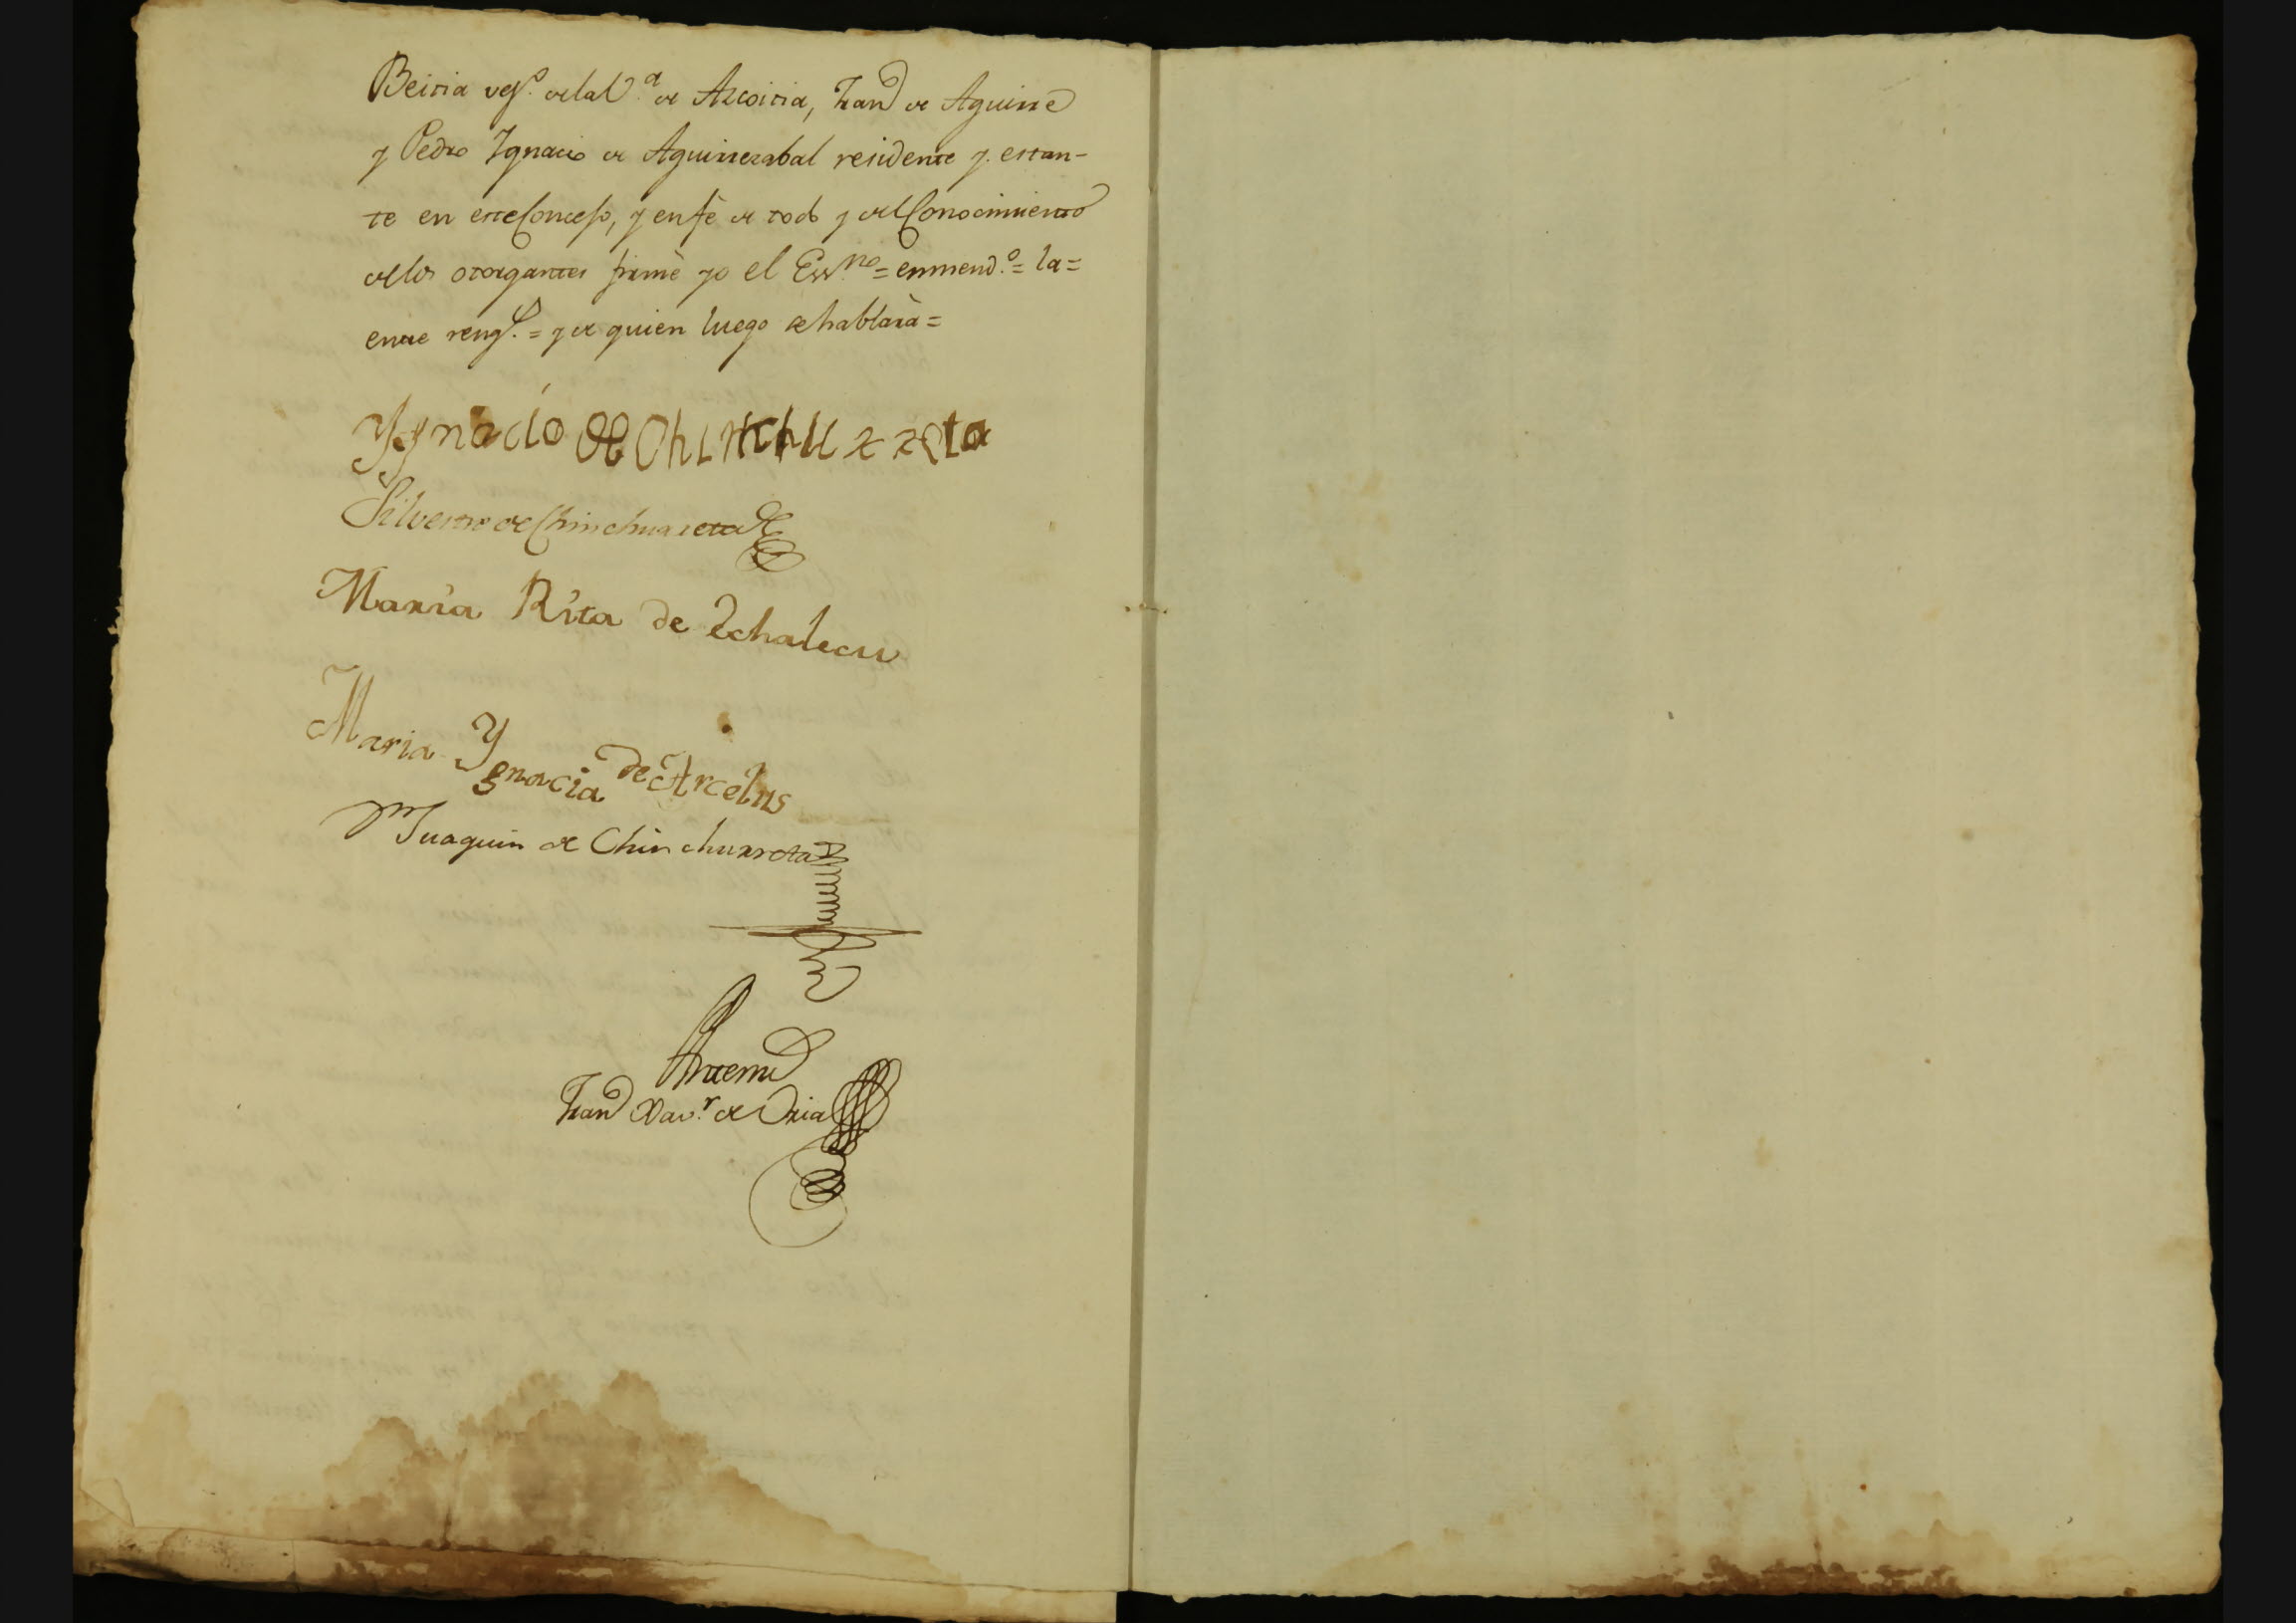 Beitia vez.º de la V.ª de Azcoitia, Fran.co de Aguirre
y Pedro Ygnacio de Aguirrezabal residente y estan-
te en este Concejo, y en fè de todo y del Conocimiento
de los otorgantes firmè yo el Ess.no = enmend.º = la =
entre reng.s = y de quien luego se hablarà =
Ygnacio de Chinchurreta
Silvestre de Chinchurreta
Maria Rita de Echalecu
Maria Ygnacia de Arcelus
Juaquin de Chinchurreta
Antemi
Fran.co Xav.r de Oria